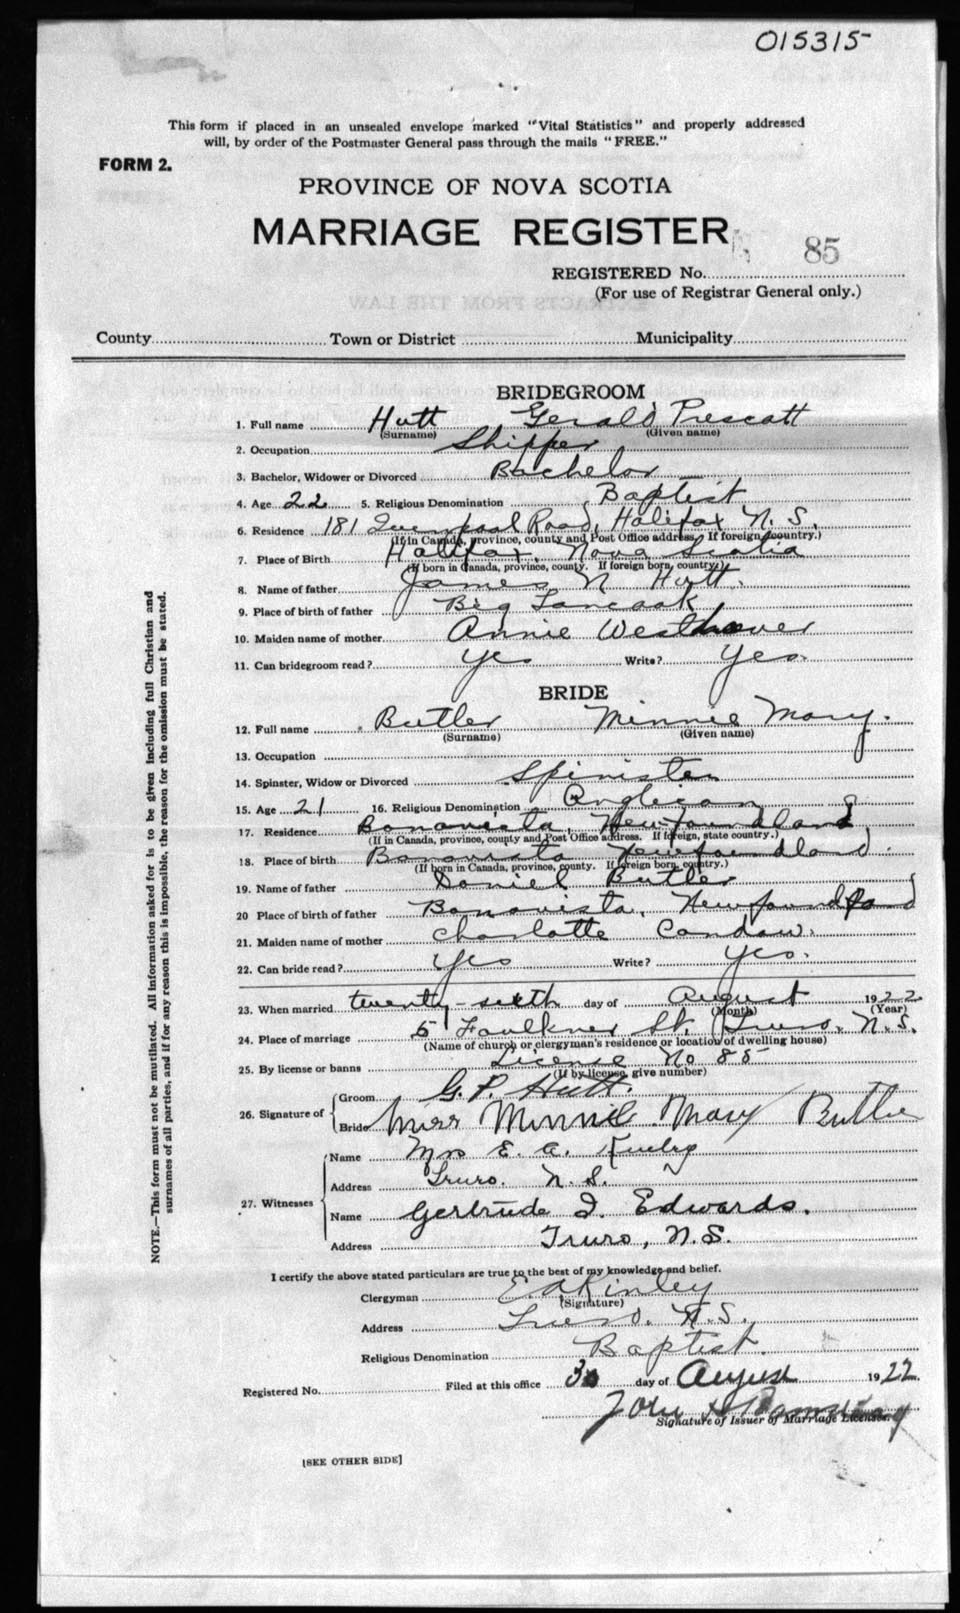 015315
This form if placed in an unsealed envelope marked "Vital Statistics" and properly addressed
will, by order of the Postmaster General pass through the mails "FREE."
FORM 2.
PROVINCE OF NOVA SCOTIA
MARRIAGE REGISTER
85
REGISTERED No.
(For use of Registrar General only.)
County Town or District Municipality
BRIDEGROOM
1. Full name Hutt Gerald Prescott
(Surname) (Given name)
2. Occupation Shipper
3. Bachelor, Widower or Divorced Bachelor
4. Age 22 5. Religious Denomination Baptist
6. Residence 181 Road, Halifax N. S.
(If in Canada, province, county and Post Office address, If foreign country.)
7. Place of Birth Halifax, Nova Scotia
(If born in Canada, province, county. If foreign born, country.)
8. Name of father James N Hutt.
9. Place of birth of father Big Tancook
10. Maiden name of mother Annie Westhaver
11. Can bridegroom read? yes Write? yes.
BRIDE
12. Full name Butler Minnie Mary.
(Surname) (Given name)
13. Occupation
14. Spinster, Widow or Divorced Spinister
15. Age 21 16. Religious Denomination Anglican
17. Residence Bonavista, Newfoundland
(If in Canada, province, county and Post Office address. If foreign, state country.)
18. Place of birth Bonavista Newfoundland.
(If born in Canada, province, county. If foreign born, country.)
19. Name of father Daniel Butler
20 Place of birth of father Bonavista, Newfoundland
21. Maiden name of mother Charlotte
22. Can bride read? yes Write? yes.
23. When married twenty-sixth day of August 1922
(Month) (Year)
24. Place of marriage 5 Faulkner St. Truro, N.S.
(Name of church or clergyman's residence or location of dwelling house)
25. By license or banns License No 85
(If by license, give number)
26. Signature of Groom G. P. Hutt.
Bride Miss Minnie Mary Butler
27. Witnesses
Name Mrs E. A. Kinley
Address Truro. N. S.
Name Gertrude I. Edwards.
Address Truro, N.S.
I certify the above stated particulars are true to the best of my knowledge and belief.
Clergyman E A Kinley
(Signature)
Address Truro. N.S.
Religious Denomination Baptist.
Registered No. Filed at this office 30 day of August 1922
John
Signature of Issuer of Marriage License.
[SEE OTHER SIDE]
NOTE.—This form must not be mutilated. All information asked for is to be given including full Christian and
surnames of all parties, and if for any reason this is impossible, the reason for the omission must be stated.